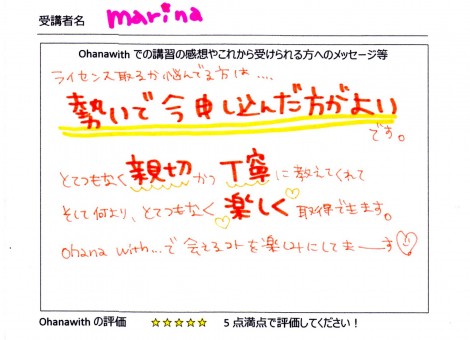 受講者名 marina
Ohanawith での講習の感想やこれから受けられる方へのメッセージ等
ライセンス取るか悩んでる方は....
勢いで今申し込んだ方がよい
です。
とてつもなく親切かつ丁寧に教えてくれて
そして何より、とてつもなく楽しく取得できます。
ohana with...で会えるコトを楽しみにしてまーす
Ohanawith の評価 ☆☆☆☆☆ 5 点満点で評価してください！